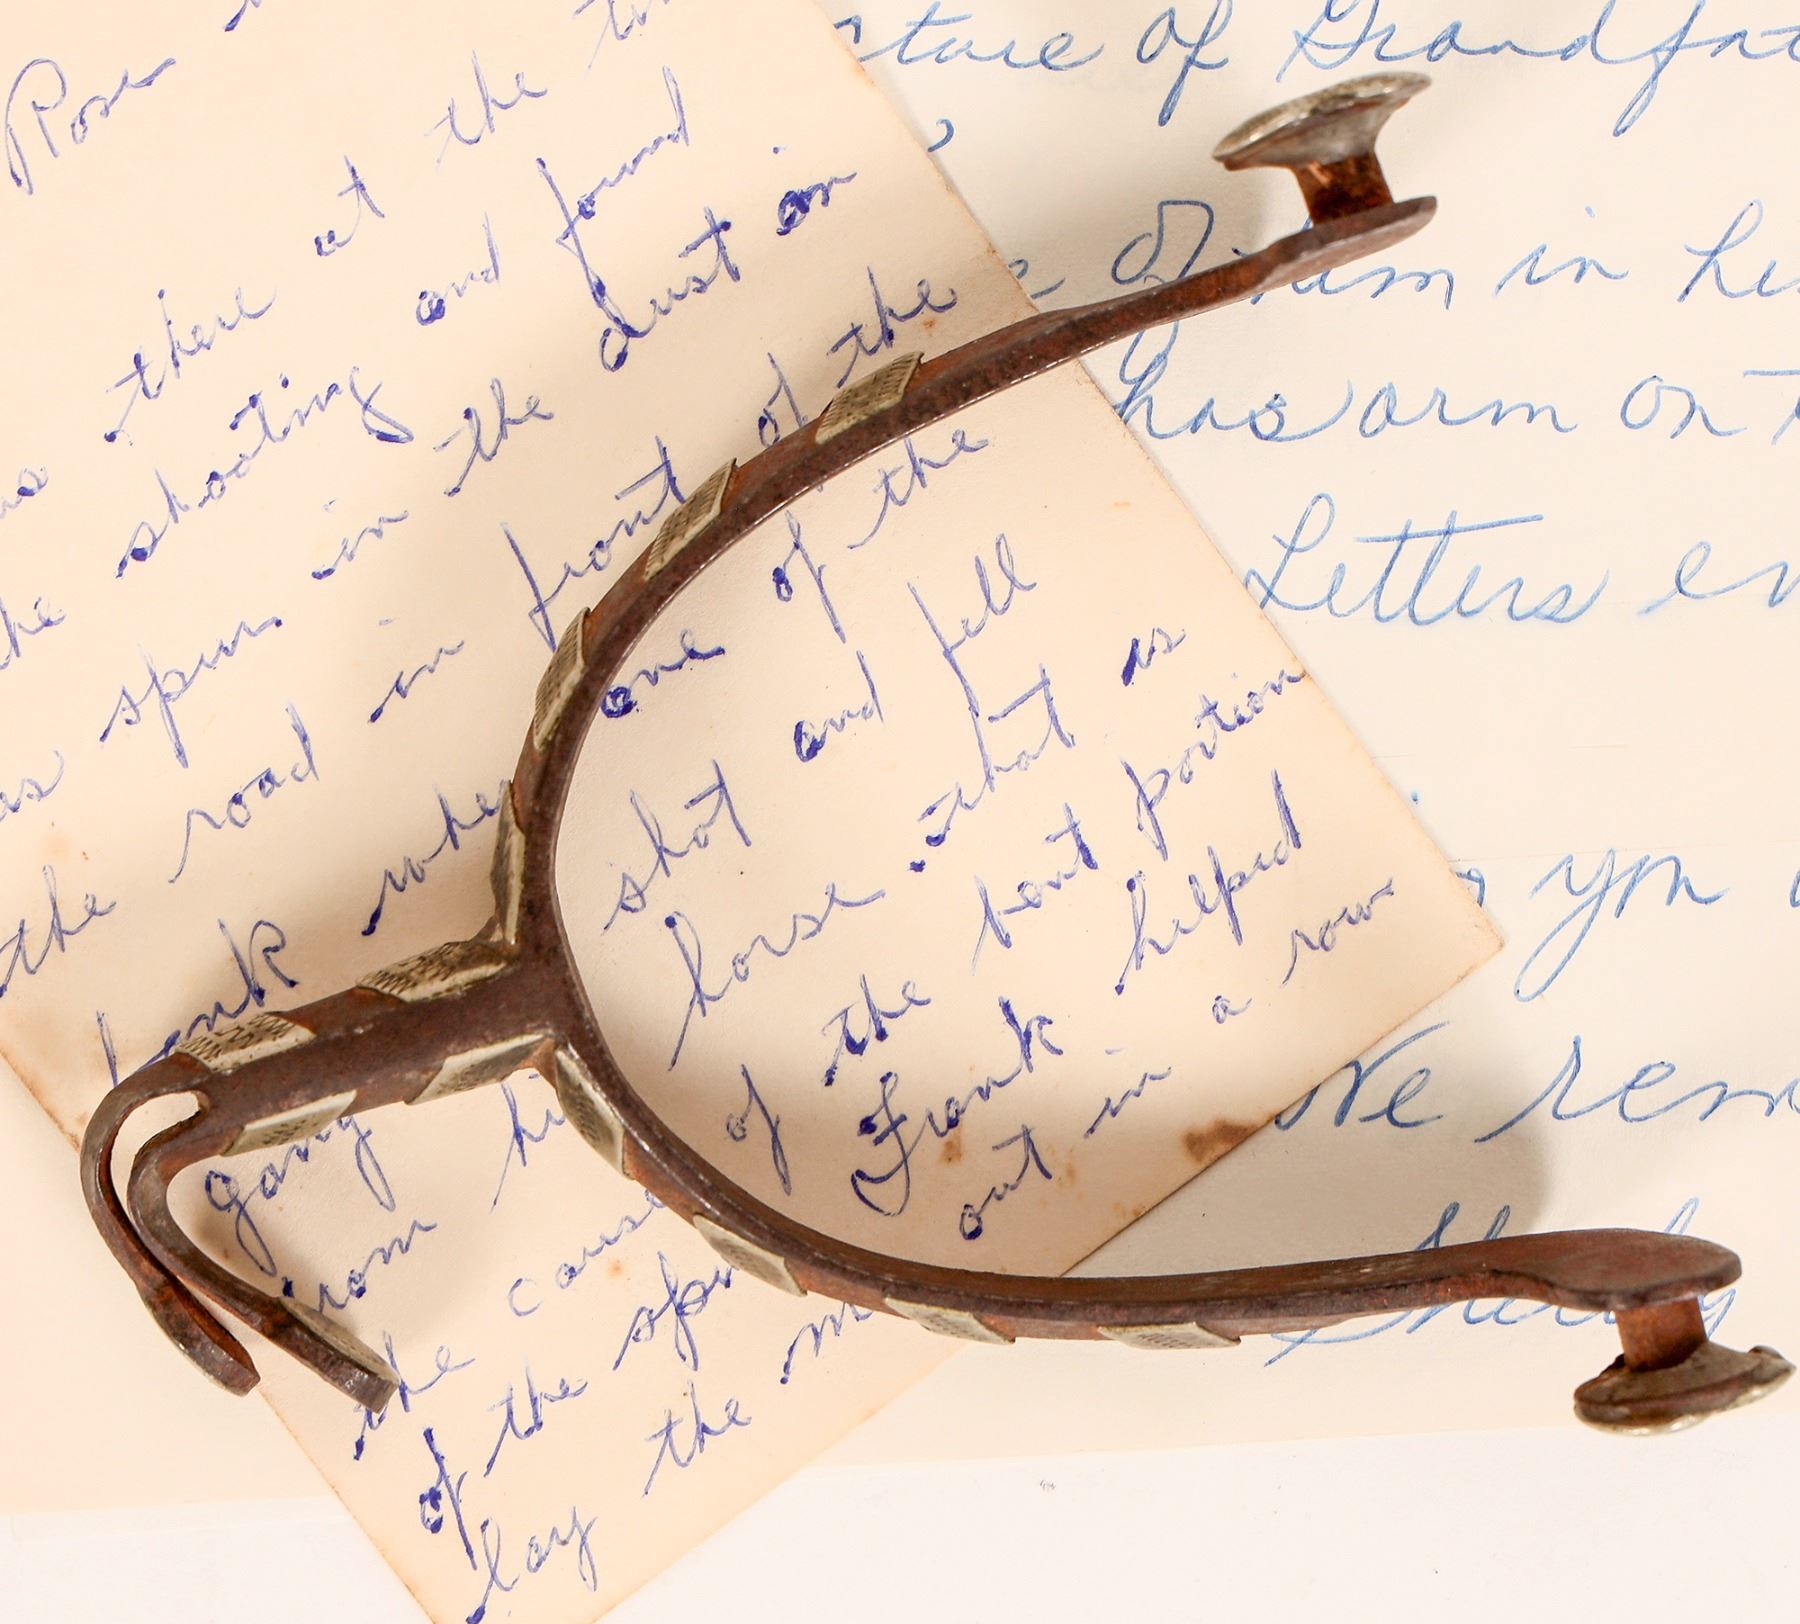 Rose
there at the
the shooting and found
spur in the dust on
the road in front of the
bank when one of the
gang shot and fell
from hi horse. that is
the cause of the bent portion
of the spu Frank helped
lay the m out in a row
cture of Grandfat
of him in his
has arm on
Letters en
you
We rem
Shirley